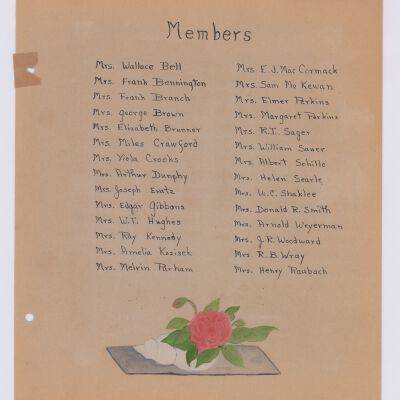 Members
Mrs. Wallace Bell
Mrs. Frank Bennington
Mrs. Frank Branch
Mrs. George Brown
Mrs. Elizabeth Brunner
Mrs. Miles Crawford
Mrs. Viola Crooks
Mrs. Arthur Dunphy
Mrs. Joseph Eratz
Mrs. Edgar Gibbons
Mrs. W.F. Hughes
Mrs. Ray Kennedy
Mrs. Amelia Kozisek
Mrs. Melvin Parham
Mrs. F.J. Mac Cormack
Mrs. Sam Mc Kewan
Mrs. Elmer Perkins
Mrs. Margaret Perkins
Mrs. R.I. Sager
Mrs. William Sauer
Mrs. Albert Schille
Mrs. Helen Searle
Mrs. W.C. Shaklee
Mrs. Donald R. Smith
Mrs. Arnold Weyerman
Mrs. J.R. Woodward
Mrs. R.B. Wray
Mrs. Henry Raubach